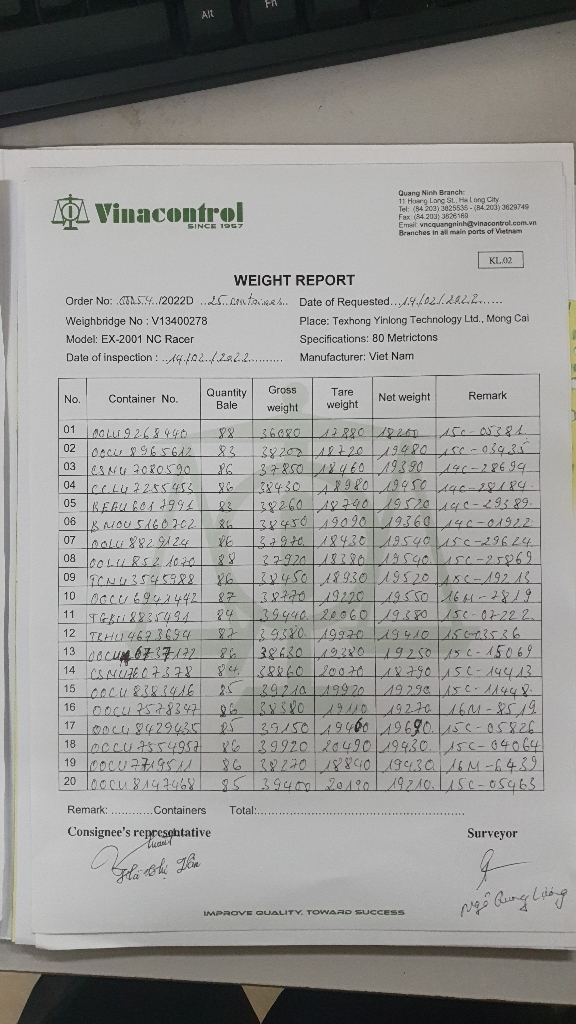 Alt
Fn
Vinacontrol
SINCE 1957
Quang Ninh Branch:
11 Hoang Long St., Ha Long City
Tel: (84.203) 3825535 - (84.203) 3629749
Fax: (84.203) 3826169
Email: vncquangninh@vinacontrol.com.vn
Branches in all main ports of Vietnam
KL.02
WEIGHT REPORT
Order No: /2022D 25 containers Date of Requested 14/02/2022
Weighbridge No : V13400278 Place: Texhong Yinlong Technology Ltd., Mong Cai
Model: EX-2001 NC Racer Specifications: 80 Metrictons
Date of inspection : 14/02/2022 Manufacturer: Viet Nam
No. Container No. Quantity Bale Gross weight Tare weight Net weight Remark
01 OOLU9268440 88 36080 17880 18200 15C-05381
02 OOCU8965612 83 38200 18720 19480 15C-03435
03 CSNU7080590 86 37850 18460 19390 14C-28694
04 CCLU7255453 86 38430 18980 19450 14C-28184
05 BEAU 83 38260 18740 19520 14C-29389
06 BMOU5160702 86 38450 19090 19360 14C-01922
07 OOLU8829124 86 37970 18430 19540 15C-29624
08 OOLU8521070 88 37920 18380 19540 15C-25869
09 TCNU3545988 86 38450 18930 19520 15C-19213
10 OOCU6941442 87 38770 19220 19550 16M-2819
11 TGBU8835491 84 39440 20060 19380 15C-07222
12 TRHU4673694 87 39380 19970 19410 15C-03536
13 OOCU6737172 86 38630 19380 19250 15C-15069
14 CSNU7607378 84 38860 20070 18790 15C-14413
15 OOCU8383416 85 39210 19920 19290 15C-11448
16 OOCU7578347 86 38380 19110 19270 16M-8519
17 OOCU8429435 85 39150 19460 19690 15C-05826
18 OOCU7554957 86 39920 20490 19430 15C-04064
19 OOCU7719511 86 38270 18840 19430 16M-6439
20 OOCU8147468 85 39400 20190 19210 15C-05463
Remark: Containers Total:
Consignee's representative Surveyor
Ngô Quang Lương
IMPROVE QUALITY, TOWARD SUCCESS